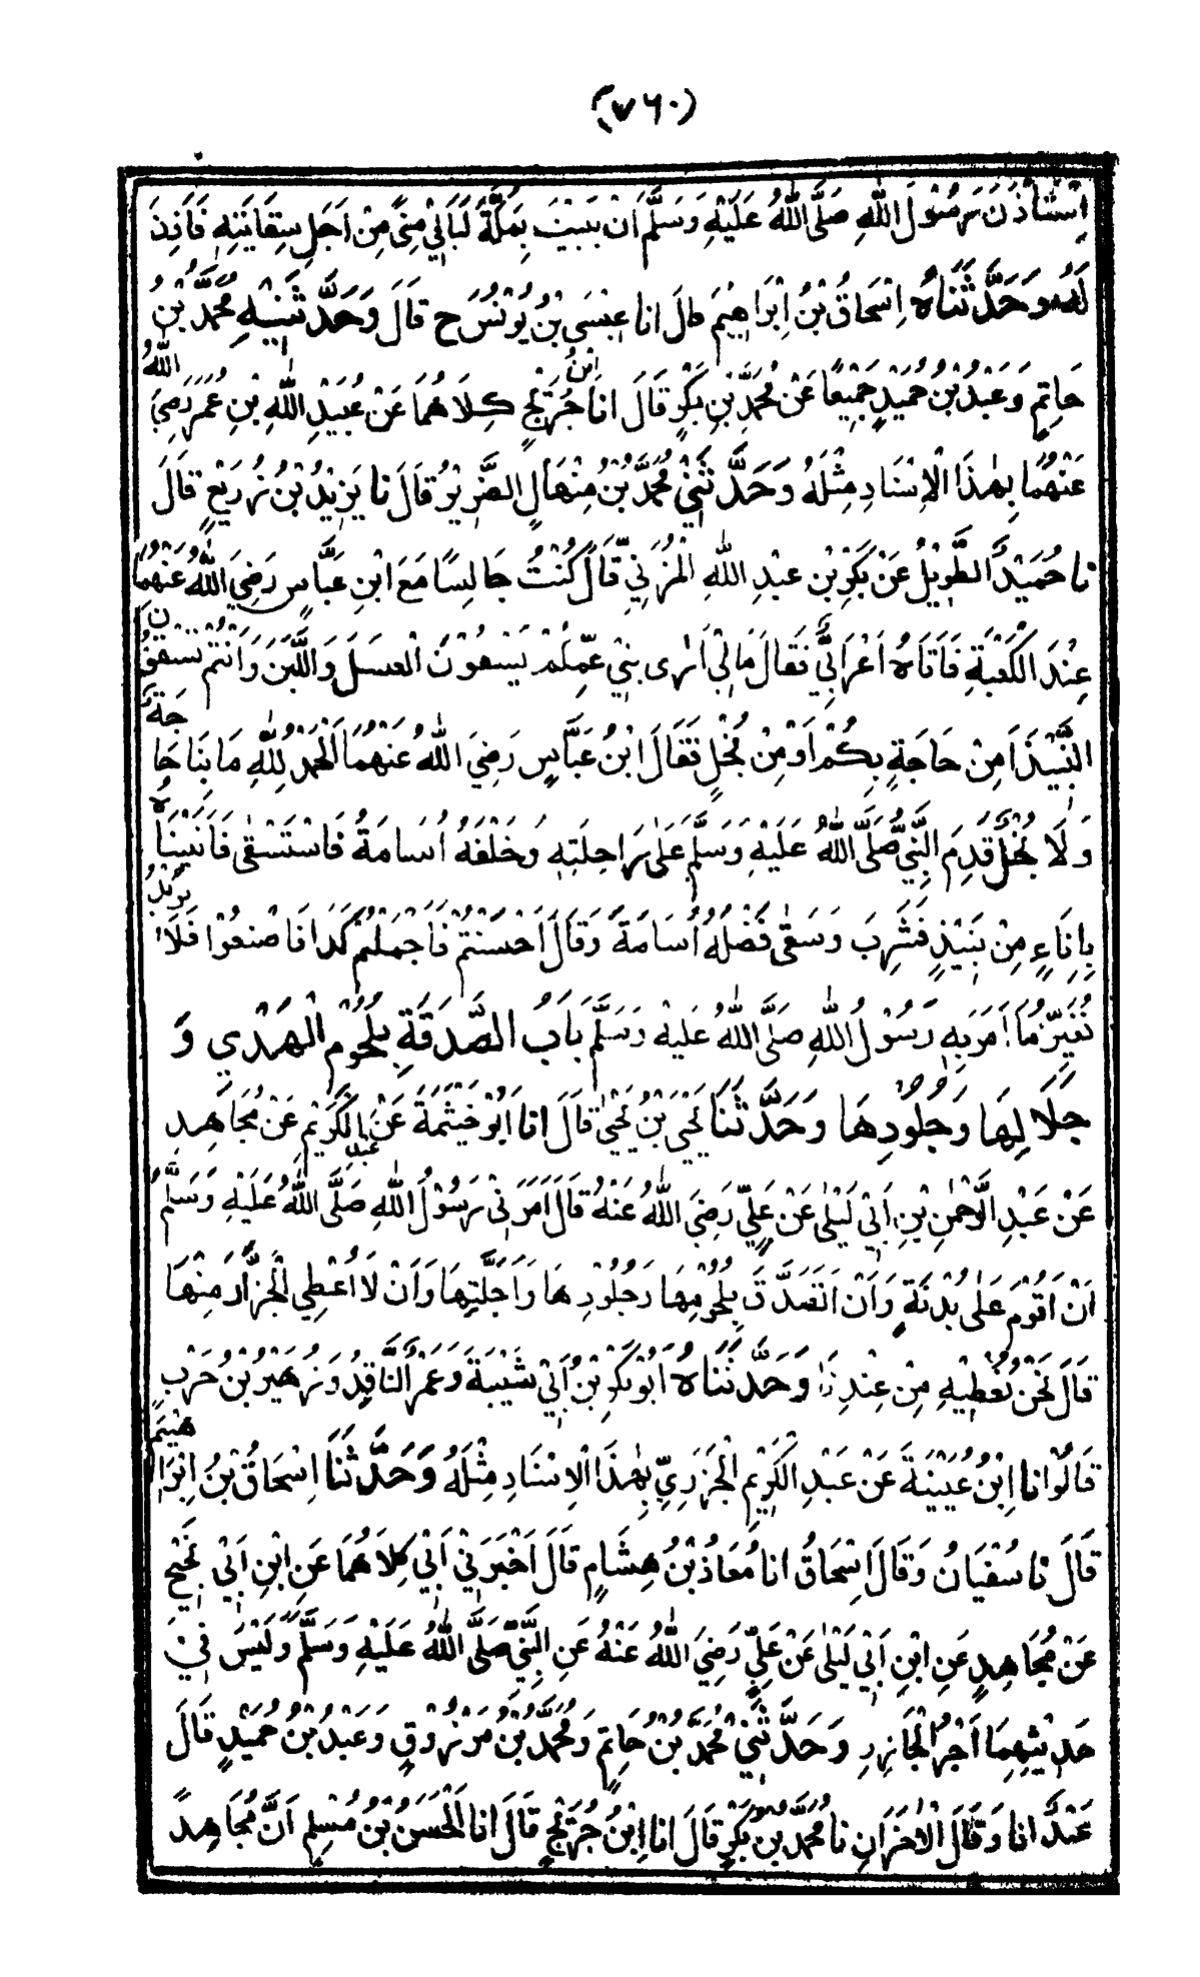 (٧٦٠)
اِسْتَأْذَنَ رَسُوْلَ اللهِ صَلَّى اللهُ عَلَيْهِ وَسَلَّمَ اَنْ يَبِيْتَ بِمَكَّةَ لَيَالِيَ مِنًى مِنْ اَجَلِ سِقَايَتِهِ فَاَذِنَ
لَهُ وَحَدَّثَنَاهُ اِسْحَاقُ بْنُ اِبْرَاهِيْمَ قالَ انا عِيْسَى بْنُ يُوْنُسَ ح قَالَ وَحَدَّثَنِيْهِ مُحَمَّدُ بْنُ
حَاتِمٍ وَعَبْدُ بْنُ حُمَيْدٍ جَمِيْعًا عَنْ مُحَمَّدِ بْنِ بَكْرٍ قَالَ انَا ابْنُ جُرَيْجٍ كِلَاهُمَا عَنْ عُبَيْدِ اللهِ بْنِ عُمَرَ رَضِيَ اللهُ
عَنْهُمَا بِهٰذَا الْاِسْنَادِ مِثْلَهُ وَحَدَّثَنِيْ مُحَمَّدُ بْنُ مِنْهَالٍ الضَّرِيْرُ قَالَ نا يَزِيْدُ بْنُ زُرَيْعٍ قَالَ
نا حُمَيْدٌ الطَّوِيْلُ عَنْ بَكْرِ بْنِ عَبْدِ اللهِ الْمُزَنِيِّ قَالَ كُنْتُ جَالِسًا مَعَ ابْنِ عَبَّاسٍ رَضِيَ اللهُ عَنْهُمَا
عِنْدَ الْكَعْبَةِ فَاَتَاهُ اَعْرَابِيٌّ فَقَالَ مَالِيْ اَرٰى بَنِيْ عَمِّكُمْ يَسْقُوْنَ الْعَسَلَ وَاللَّبَنَ وَاَنْتُمْ تَسْقُوْنَ
النَّبِيْذَ اَمِنْ حَاجَةٍ بِكُمْ اَوْ مِنْ بُخْلٍ فَقَالَ ابْنُ عَبَّاسٍ رَضِيَ اللهُ عَنْهُمَا اَلْحَمْدُ لِلّٰهِ مَا بِنَا حَاجَةٌ
وَلَا بُخْلٌ قَدِمَ النَّبِيُّ صَلَّى اللهُ عَلَيْهِ وَسَلَّمَ عَلٰى رَاحِلَتِهِ وَخَلْفَهُ اُسَامَةُ فَاسْتَسْقٰى فَاَتَيْنَاهُ
بِاِنَاءٍ مِنْ نَبِيْذٍ فَشَرِبَ وَسَقٰى فَضْلَهُ اُسَامَةَ وَقَالَ اَحْسَنْتُمْ وَاَجْمَلْتُمْ كَذَا فَاصْنَعُوْا فَلَا نُرِيْدُ
تُغَيِّرُ مَا اَمَرَ بِهِ رَسُوْلُ اللهِ صَلَّى اللهُ عَلَيْهِ وَسَلَّمَ بَابُ الصَّدَقَةِ بِلُحُوْمِ الْهَدْيِ وَ
جِلَالِهَا وَجُلُوْدِهَا وَحَدَّثَنَا يَحْيَى بْنُ يَحْيٰى قَالَ انا اَبُوْ خَيْثَمَةَ عَنْ عَبْدِ الْكَرِيْمِ عَنْ مُجَاهِدٍ
عَنْ عَبْدِ الرَّحْمٰنِ بْنِ اَبِيْ لَيْلٰى عَنْ عَلِيٍّ رَضِيَ اللهُ عَنْهُ قَالَ اَمَرَنِيْ رَسُوْلُ اللهِ صَلَّى اللهُ عَلَيْهِ وَسَلَّمَ
اَنْ اَقُوْمَ عَلٰى بُدْنِهِ وَاَنْ اَتَصَدَّقَ بِلُحُوْمِهَا وَجُلُوْدِهَا وَاَجِلَّتِهَا وَاَنْ لَا اُعْطِيَ الْجَزَّارَ مِنْهَا
قَالَ نَحْنُ نُعْطِيْهِ مِنْ عِنْدِنَا وَحَدَّثَنَاهُ اَبُوْ بَكْرِ بْنُ اَبِيْ شَيْبَةَ وَعَمْرٌو النَّاقِدُ وَزُهَيْرُ بْنُ حَرْبٍ
قَالُوْا نا ابْنُ عُيَيْنَةَ عَنْ عَبْدِ الْكَرِيْمِ الْجَزَرِيِّ بِهٰذَا الْاِسْنَادِ مِثْلَهُ وَحَدَّثَنَا اِسْحَاقُ بْنُ اِبْرَاهِيْمَ
قَالَ نا سُفْيَانُ وَقَالَ اِسْحَاقُ انا مُعَاذُ بْنُ هِشَامٍ قَالَ اَخْبَرَنِيْ اَبِيْ كِلَاهُمَا عَنِ ابْنِ اَبِيْ نَجِيْحٍ
عَنْ مُجَاهِدٍ عَنِ ابْنِ اَبِيْ لَيْلٰى عَنْ عَلِيٍّ رَضِيَ اللهُ عَنْهُ عَنِ النَّبِيِّ صَلَّى اللهُ عَلَيْهِ وَسَلَّمَ وَلَيْسَ فِيْ
حَدِيْثِهِمَا اَجْرُ الْجَازِرِ وَحَدَّثَنِيْ مُحَمَّدُ بْنُ حَاتِمٍ وَمُحَمَّدُ بْنُ مَرْزُوْقٍ وَعَبْدُ بْنُ حُمَيْدٍ قَالَ
عَبْدٌ انا وَقَالَ الْاٰخَرَانِ نا مُحَمَّدُ بْنُ بَكْرٍ قَالَ انا ابْنُ جُرَيْجٍ قَالَ انا الْحَسَنُ بْنُ مُسْلِمٍ اَنَّ مُجَاهِدًا